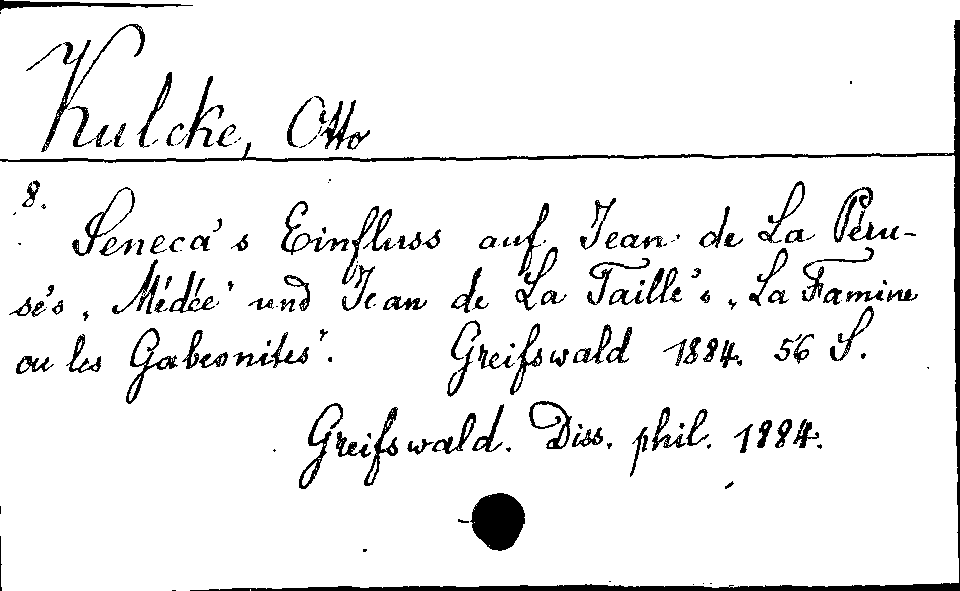 Kulcke, Otto
8.
Seneca's Einfluss auf Jean de La Péru-
sé's „Médée" und Jean de La Taille's „La Famine
ou les Gabeonites".    Greifswald 1884. 56 S.
Greifswald. Diss. phil. 1884.